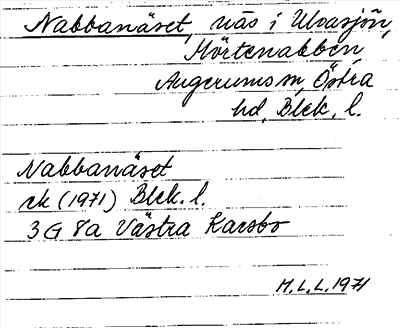 Nabbanäset, näs i Ulvasjön,
Mörtenabben,
Augerums sn, Östra
hd, Blek. l.
Nabbanäset
rk (1971) Blek. l.
3 G 8a Västra Karsbo
M.L.L. 1971